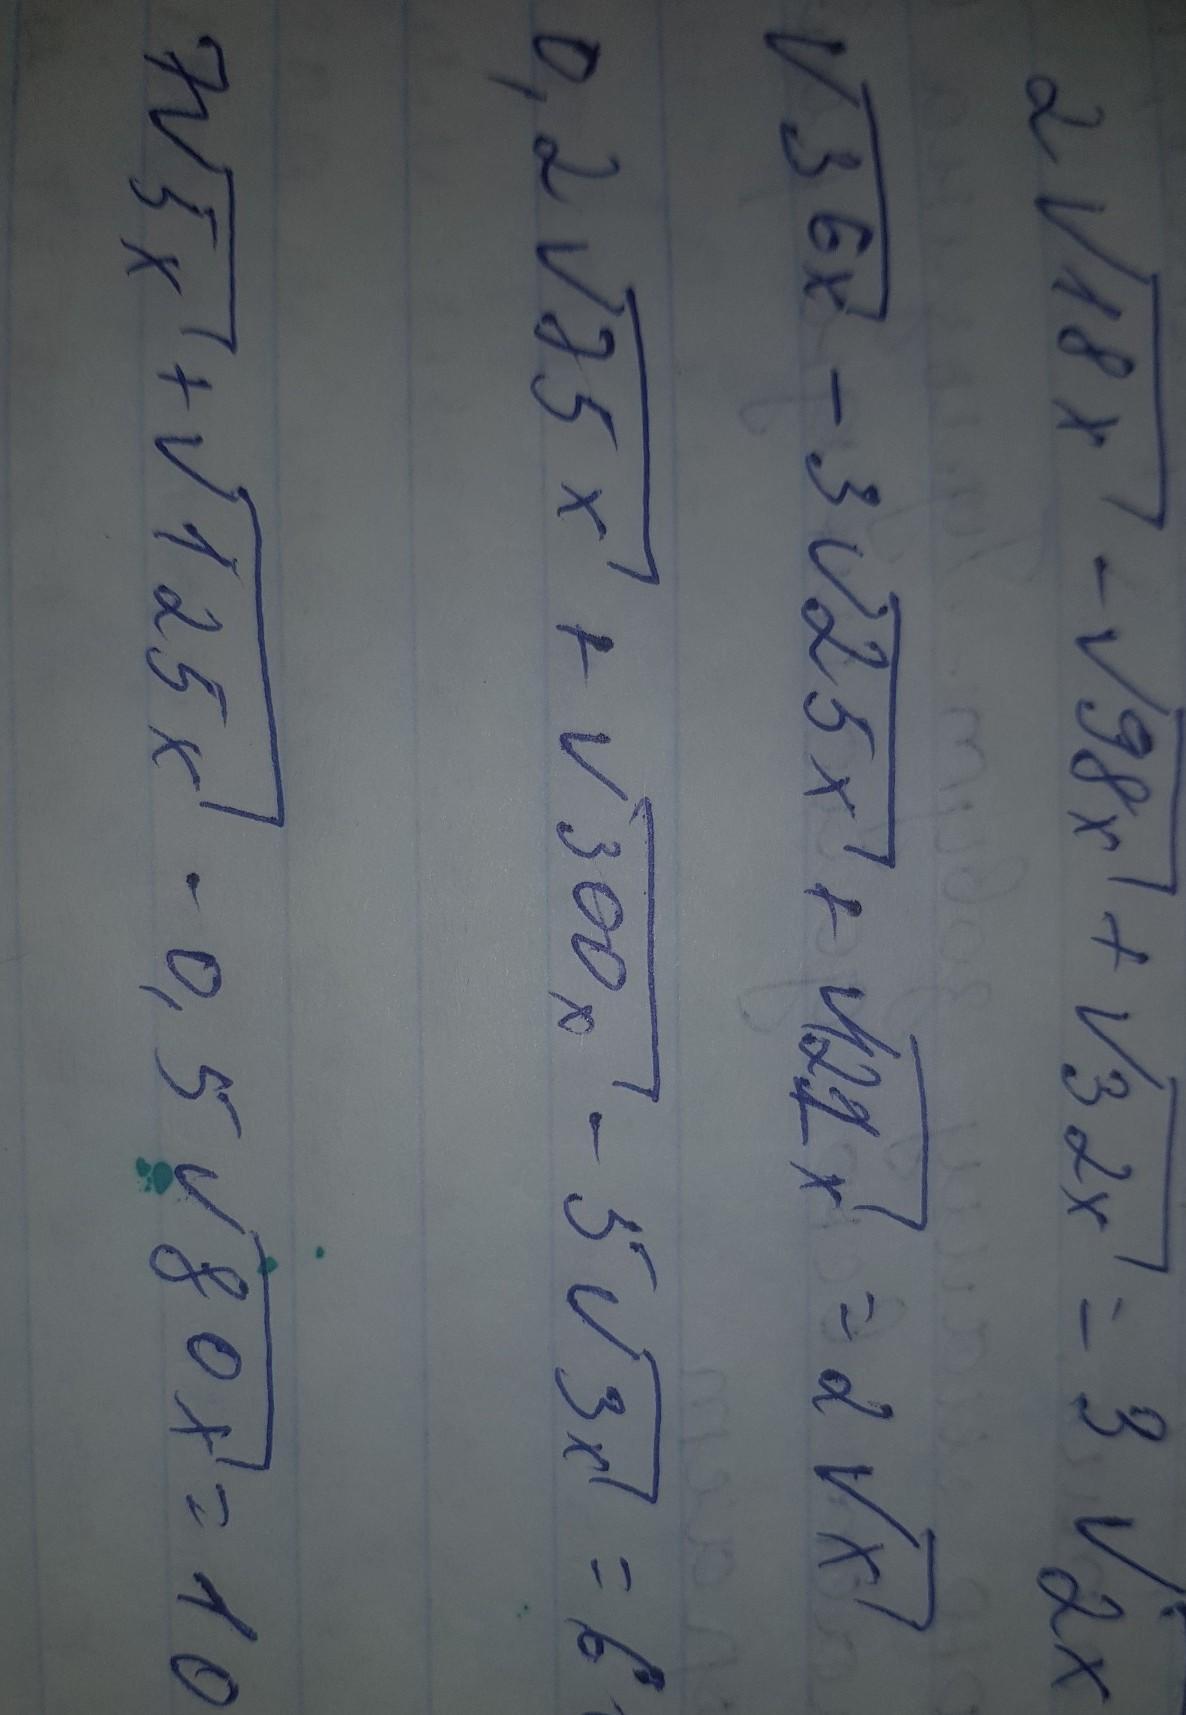 2√18x - √98x + √32x = 3√2x
√36x - 3√25x + √121x = 2√x
0,2√75x + √300x - 5√3x = 6
7√5x + √125x - 0,5√80x = 10